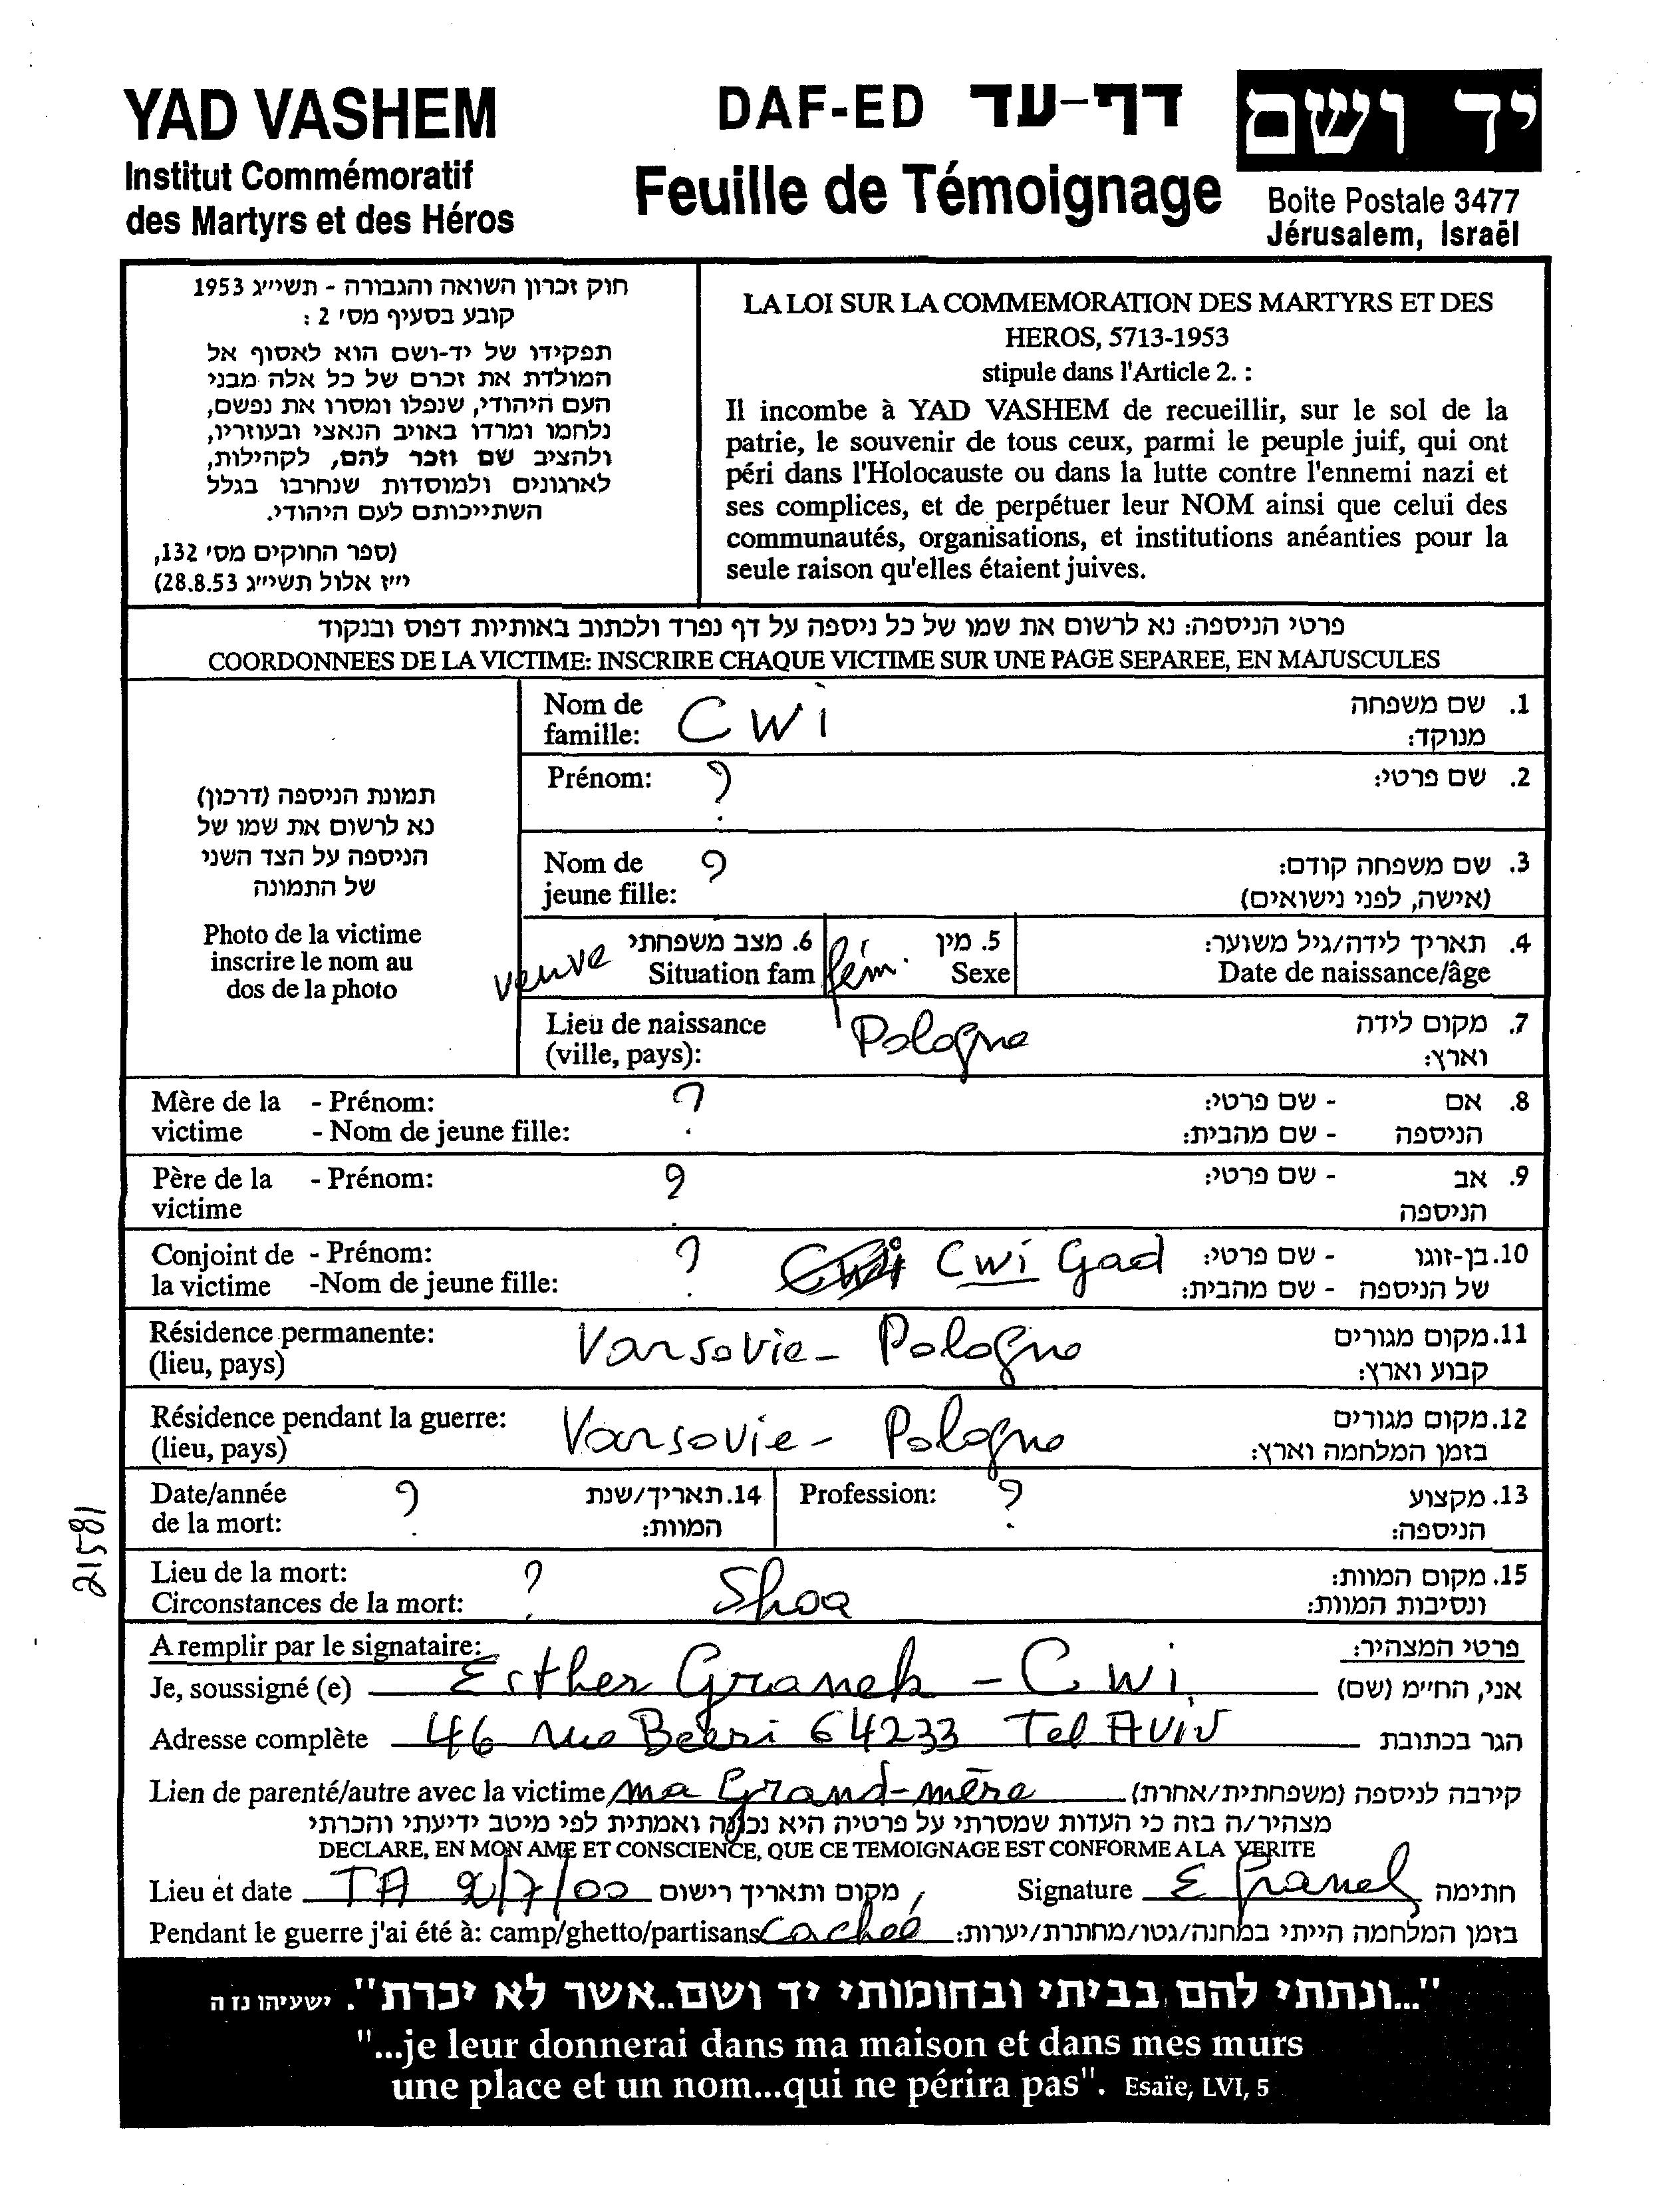 YAD VASHEM
Institut Commémoratif
des Martyrs et des Héros
DAF-ED דף-עד
Feuille de Témoignage
יד ושם
Boite Postale 3477
Jérusalem, Israël
חוק זכרון השואה והגבורה - תשי״ג 1953
קובע בסעיף מס׳ 2 :
תפקידו של יד-ושם הוא לאסוף אל
המולדת את זכרם של כל אלה מבני
העם היהודי, שנפלו ומסרו את נפשם,
נלחמו ומרדו באויב הנאצי ובעוזריו,
ולהציב שם וזכר להם, לקהילות,
לארגונים ולמוסדות שנחרבו בגלל
השתייכותם לעם היהודי.
(ספר החוקים מס׳ 132,
י״ז אלול תשי״ג 28.8.53)
LA LOI SUR LA COMMEMORATION DES MARTYRS ET DES
HEROS, 5713-1953
stipule dans l'Article 2. :
Il incombe à YAD VASHEM de recueillir, sur le sol de la
patrie, le souvenir de tous ceux, parmi le peuple juif, qui ont
péri dans l'Holocauste ou dans la lutte contre l'ennemi nazi et
ses complices, et de perpétuer leur NOM ainsi que celui des
communautés, organisations, et institutions anéanties pour la
seule raison qu'elles étaient juives.
פרטי הניספה: נא לרשום את שמו של כל ניספה על דף נפרד ולכתוב באותיות דפוס ובנקוד
COORDONNEES DE LA VICTIME: INSCRIRE CHAQUE VICTIME SUR UNE PAGE SEPAREE, EN MAJUSCULES
תמונת הניספה (דרכון)
נא לרשום את שמו של
הניספה על הצד השני
של התמונה
Photo de la victime
inscrire le nom au
dos de la photo
Nom de Cwi 1. שם משפחה
famille: מנוקד:
Prénom: ? 2. שם פרטי:
Nom de ? 3. שם משפחה קודם:
jeune fille: (אישה, לפני נישואים)
veuve 6. מצב משפחתי fém. 5. מין 4. תאריך לידה/גיל משוער:
Situation fam Sexe Date de naissance/âge
Lieu de naissance Pologne 7. מקום לידה
(ville, pays): וארץ:
Mère de la - Prénom: ? - שם פרטי: 8. אם
victime - Nom de jeune fille: - שם מהבית: הניספה
Père de la - Prénom: ? - שם פרטי: 9. אב
victime הניספה
Conjoint de - Prénom: ? Cwi Gad - שם פרטי: 10. בן-זוגו
la victime -Nom de jeune fille: - שם מהבית: של הניספה
Résidence permanente: Varsovie - Pologne 11. מקום מגורים
(lieu, pays) קבוע וארץ:
Résidence pendant la guerre: Varsovie - Pologne 12. מקום מגורים
(lieu, pays) בזמן המלחמה וארץ:
Date/année ? 14. תאריך/שנת Profession: ? 13. מקצוע
de la mort: המוות: הניספה:
Lieu de la mort: ? Shoa 15. מקום המוות:
Circonstances de la mort: ונסיבות המוות:
21581
A remplir par le signataire: פרטי המצהיר:
Je, soussigné (e) Esther Granek - Cwi אני, החי״מ (שם)
Adresse complète 46 rue Beeri 64233 Tel Aviv הגר בכתובת
Lien de parenté/autre avec la victime ma Grand-mère קירבה לניספה (משפחתית/אחרת)
מצהיר/ה בזה כי העדות שמסרתי על פרטיה היא נכונה ואמתית לפי מיטב ידיעתי והכרתי
DECLARE, EN MON AME ET CONSCIENCE, QUE CE TEMOIGNAGE EST CONFORME A LA VERITE
Lieu et date TA 2/7/00 מקום ותאריך רישום Signature E Granek חתימה
Pendant le guerre j'ai été à: camp/ghetto/partisans Cachée בזמן המלחמה הייתי במחנה/גטו/מחתרת/יערות:
"...ונתתי להם בביתי ובחומותי יד ושם..אשר לא יכרת". ישעיהו נו ה
"...je leur donnerai dans ma maison et dans mes murs
une place et un nom...qui ne périra pas". Esaïe, LVI, 5